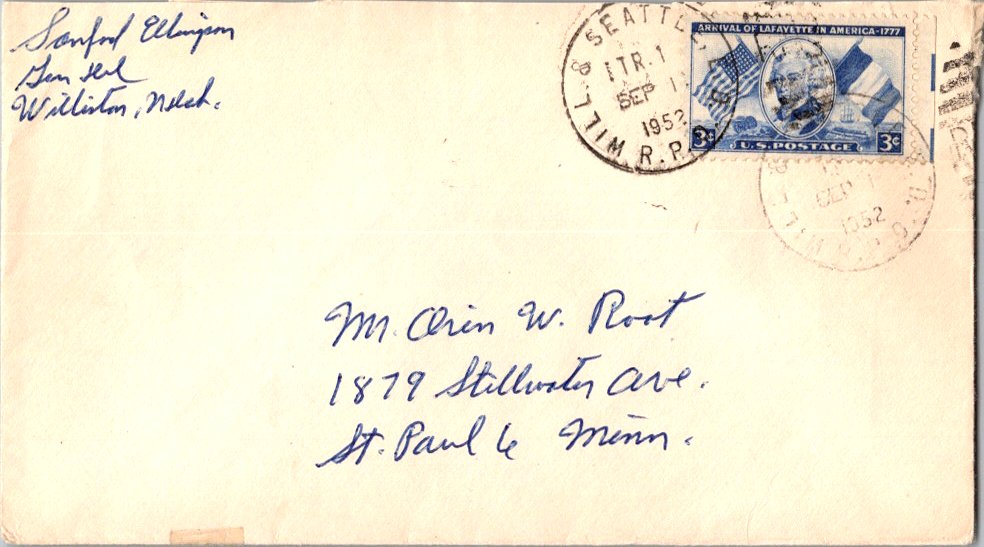 Sanford Ellingson
Gen Del
Williston, N.Dak.
WILL. & SEATTLE
TR. 1
SEP 1
1952
R.P.
ARRIVAL OF LAFAYETTE IN AMERICA-1777
3¢ U.S. POSTAGE 3¢
SEP 1
1952
Mr. Oren W. Root
1879 Stillwater Ave.
St. Paul 6 Minn.